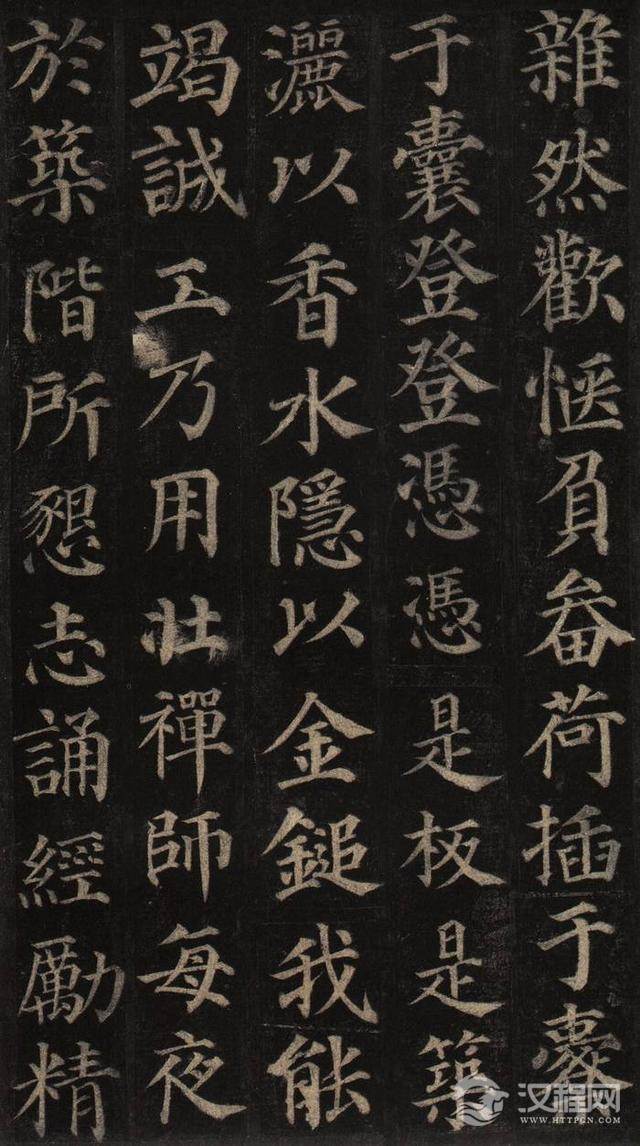 雜然歡愜負畚荷插于橐
于囊登登憑憑是板是築
灑以香水隱以金鎚我能
竭誠工乃用壯禪師每夜
於築階所懇志誦經勵精
汉程网
WWW.HTTPCN.COM